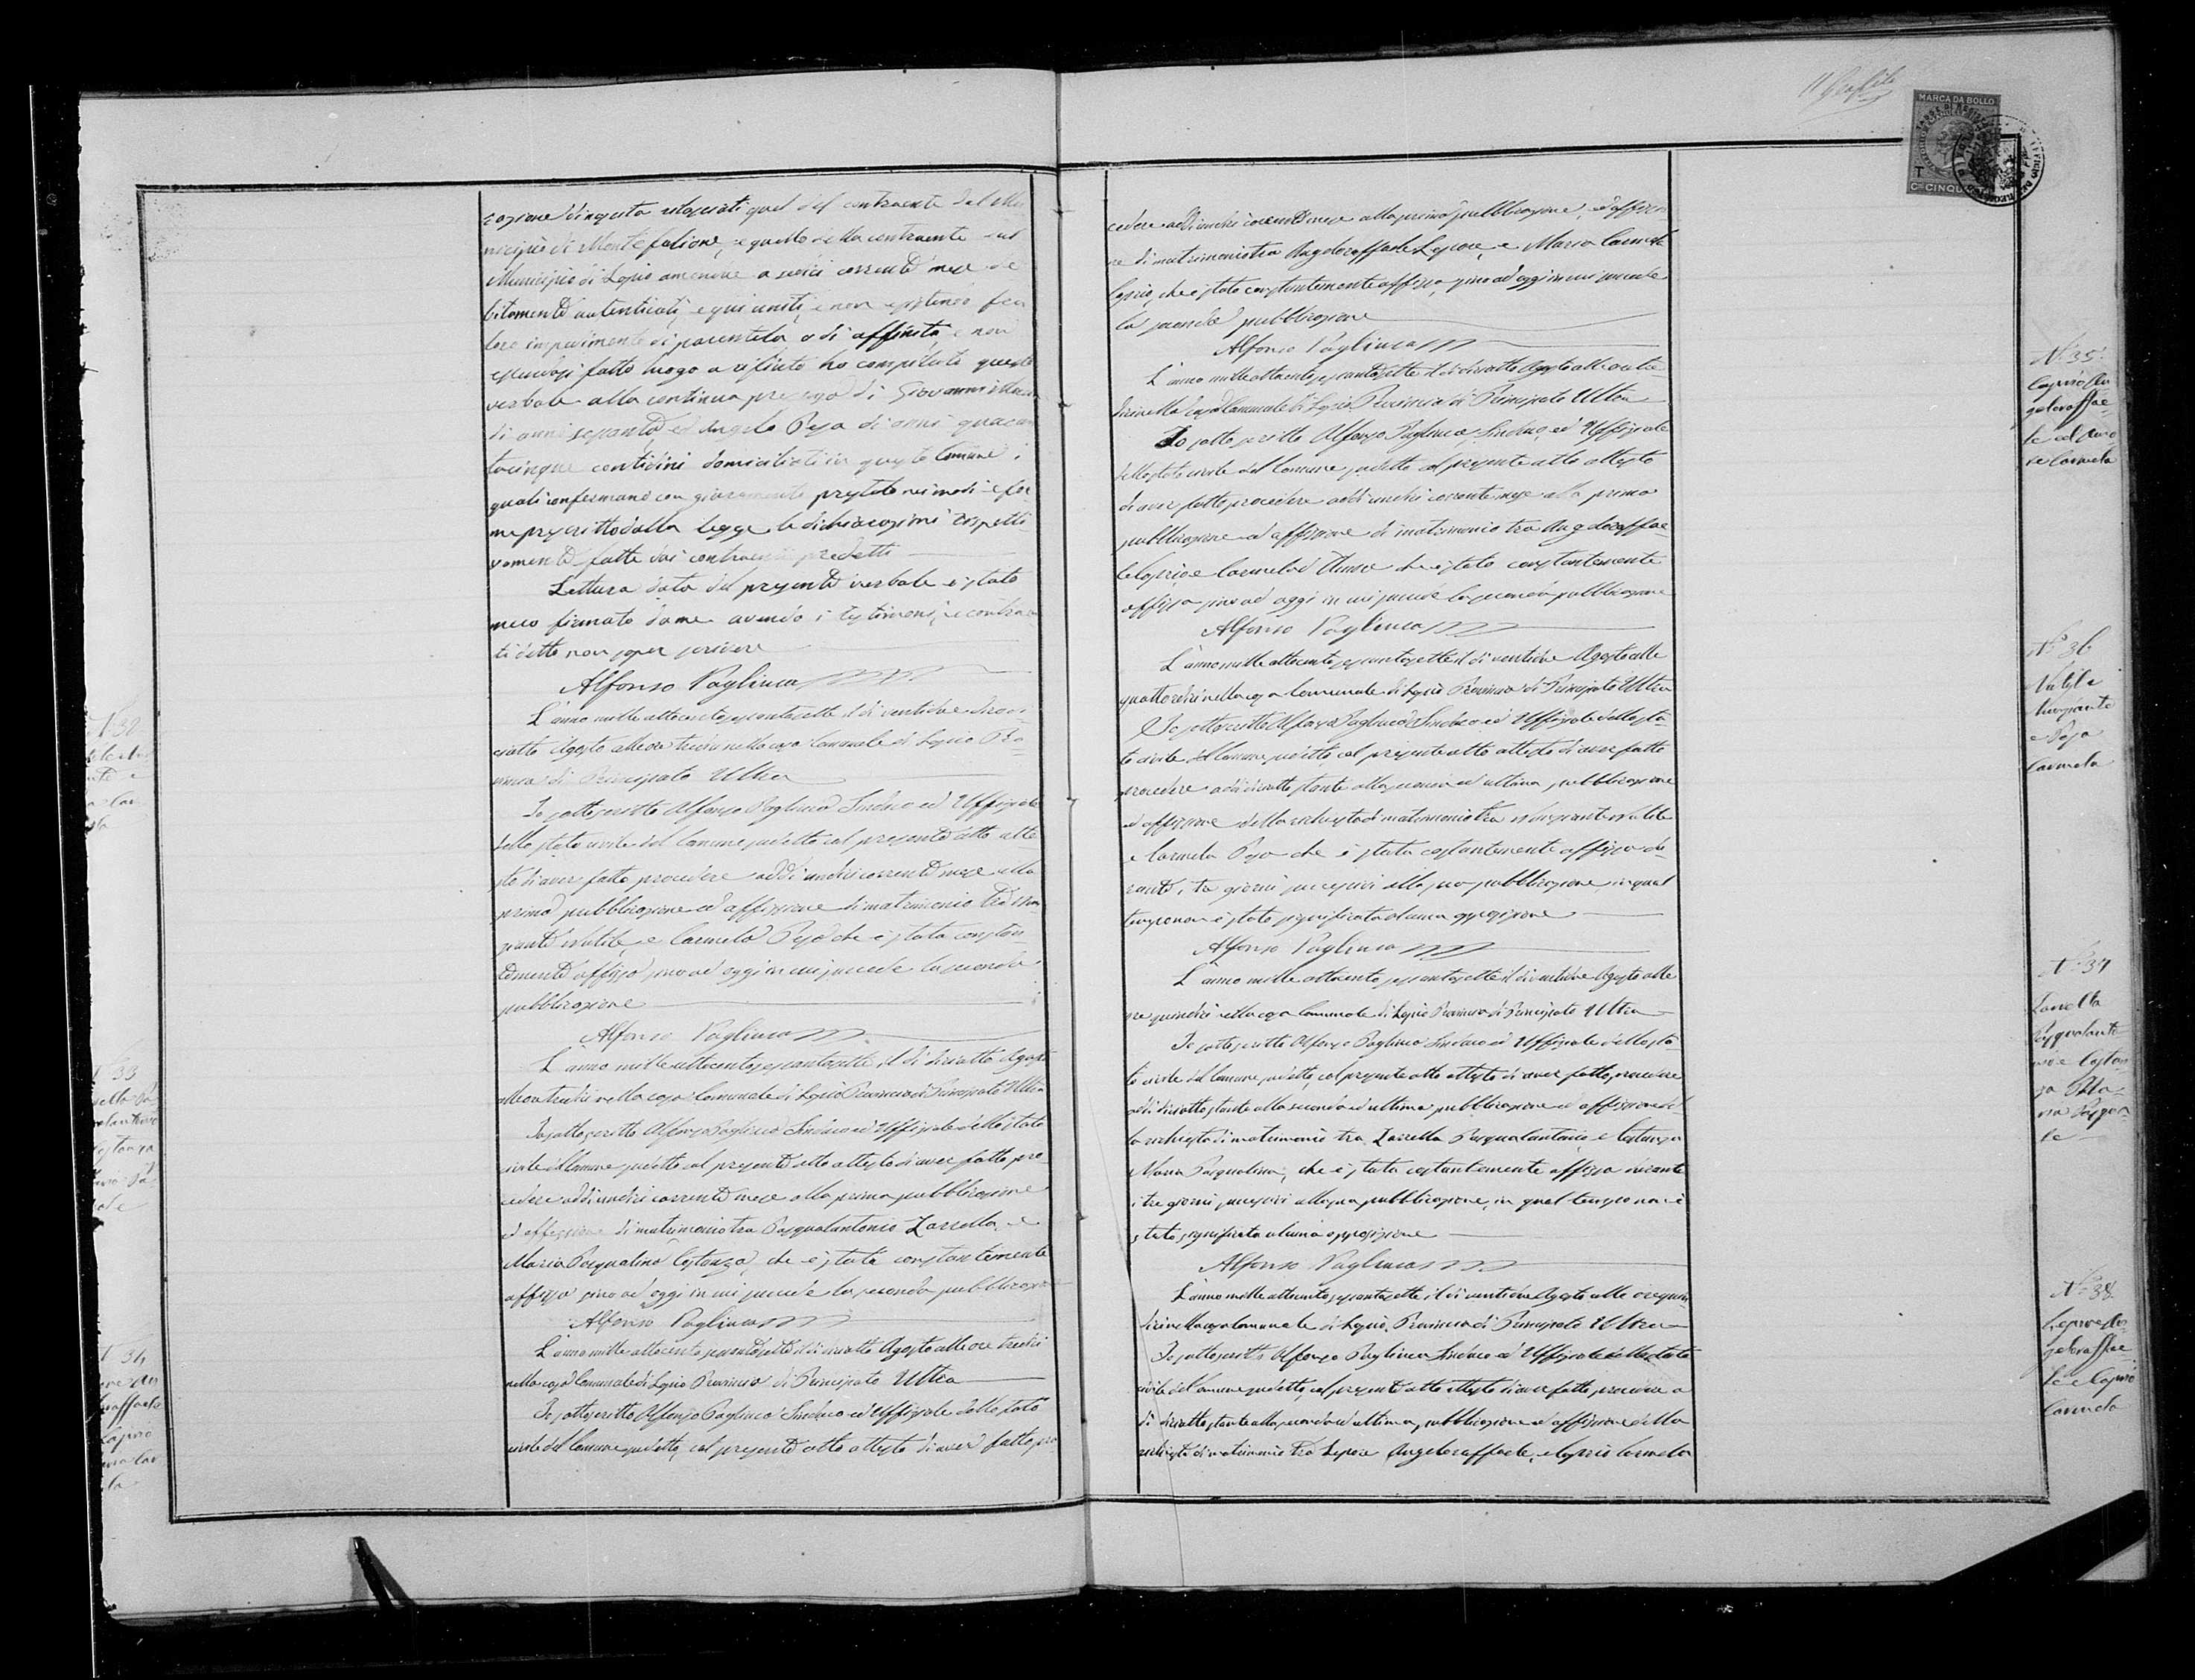 N. 32
N. 33
N. 34
cazione di nascita rilasciati quel del contraente dal Mu
nicipio di Montefalcione, e quello della contraente dal
Municipio di Lapio amendue a sedici corrente mese de
bitamente autenticati, e qui uniti, e non esistendo fra
loro impedimento di parentela o di affinità, e non
essendosi fatto luogo a rifiuto ho compilato questo
verbale alla continua presenza di Giovanni
di anni sessanta ed Angelo Pepa di anni quaran
tacinque contadini domiciliati in questo Comune i
quali confermano con giuramento prestato nei modi e for
me prescritto dalla legge le dichiarazioni rispetti
vamente fatte dai contraenti predetti
Lettura data del presente verbale è stato
meco firmato da me avendo i testimoni, e contraen
ti detto non saper scrivere
Alfonso Pagliuca
L'anno mille ottocento sessantasette il dì ventidue dicio
ciotto Agosto alle ore tredici nella casa Comunale di Lapio Pro
vincia di Principato Ultra
Io sottoscritto Alfonso Pagliuca Sindaco ed Uffiziale
dello stato civile del Comune suddetto col presente atto atte
sto di aver fatto procedere addì undici corrente mese alla
prima pubblicazione ed affissione di matrimonio tra
Natile, e Carmela Pepa che è stata constan
temente affissa sino ad oggi in cui succede la seconda
pubblicazione
Alfonso Pagliuca
L'anno mille ottocento sessantasette, il dì diciotto Agosto
alle ore tredici nella casa Comunale di Lapio Provincia di Principato Ultra
Io sottoscritto Alfonso Pagliuca Sindaco ed Uffiziale dello stato
civile del Comune suddetto col presente atto attesto di aver fatto pro
cedere addì undici corrente mese alla prima pubblicazione
ed affissione di matrimonio tra Pasqualantonio Zarrella, e
Maria Pasqualina Costanza, che è stata constantemente
affissa sino ad oggi in cui succede la seconda pubblicazione
Alfonso Pagliuca
L'anno mille ottocento sessantasette il dì diciotto Agosto alle ore tredici
nella casa Comunale di Lapio Provincia di Principato Ultra
Io sottoscritto Alfonso Pagliuca Sindaco ed Uffiziale dello stato
civile del Comune suddetto, col presente atto attesto di aver fatto pro
MARCA DA BOLLO
T
C. CINQU
cedere addì undici corrente mese alla prima pubblicazione, ed affissio
ne di matrimonio tra Angeloraffaele Lepore, e Maria Carmela
Caprio, che è stata constantemente affissa sino ad oggi in cui succede
la seconda pubblicazione
Alfonso Pagliuca
L'anno mille ottocento sessantasette il dì diciotto Agosto alle ore tre
dici nella casa Comunale di Lapio Provincia di Principato Ultra
Io sottoscritto Alfonso Pagliuca, Sindaco, ed Uffiziale
dello stato civile del Comune suddetto col presente atto attesto
di aver fatto procedere addì undici corrente mese alla prima
pubblicazione ed affissione di matrimonio tra Angeloraffae
le Caprio e Carmela che è stata constantemente
affissa sino ad oggi in cui succede la seconda pubblicazione
Alfonso Pagliuca
L'anno mille ottocento sessantasette il dì ventidue Agosto alle
quattordici nella casa Comunale di Lapio Provincia di Principato Ultra
Io sottoscritto Alfonso Pagliuca Sindaco ed Uffiziale dello sta
to civile del Comune suddetto, col presente atto attesto di aver fatto
procedere addì diciotto stante alla seconda ed ultima pubblicazione
ed affissione della richiesta di matrimonio tra Natile
e Carmela Pepa che è stata costantemente affissa du
rante i tre giorni successivi alla sua pubblicazione in qual
tempo non è stata significata alcuna opposizione
Alfonso Pagliuca
L'anno mille ottocento sessantasette il dì ventidue Agosto alle
ore quindici nella casa Comunale di Lapio Provincia di Principato Ultra
Io sottoscritto Alfonso Pagliuca Sindaco ed Uffiziale dello sta
to civile del Comune suddetto, col presente atto attesto di aver fatto procedere
addì diciotto stante alla seconda ed ultima pubblicazione ed affissione del
la richiesta di matrimonio tra Zarrella Pasqualantonio e Costanza
Maria Pasqualina, che è stata costantemente affissa durante
i tre giorni successivi alla sua pubblicazione, in qual tempo non è
stata significata alcuna opposizione
Alfonso Pagliuca
L'anno mille ottocento sessantasette il dì ventidue Agosto alle ore quin
dici nella casa Comunale di Lapio, Provincia di Principato Ultra
Io sottoscritto Alfonso Pagliuca Sindaco ed Uffiziale dello stato
civile del Comune suddetto, col presente atto attesto di aver fatto procedere a
dì diciotto stante alla seconda ed ultima pubblicazione ed affissione della
richiesta di matrimonio tra Lepore Angeloraffaele, e Caprio Carmela
N. 35.
Caprio An
geloraffae
le ed
Carmela
N. 36
Natile
e Pepa
Carmela
N. 37
Zarrella
Pasqualanto
nio e Costan
za Ma
ria Pasqua
N. 38
Lepore An
geloraffae
le e Caprio
Carmela